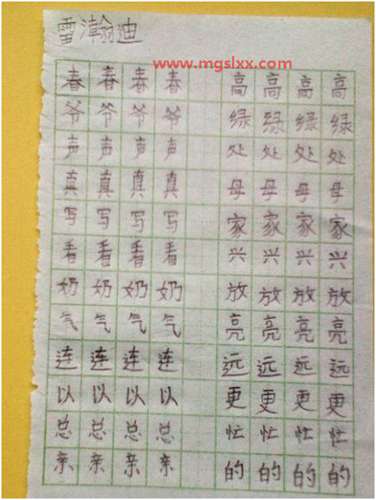 雷瀚迪
www.mgslxx.com
春春春春 高高高高
爷爷爷爷 绿绿绿绿
声声声声 处处处处
真真真真 母母母母
写写写写 家家家家
看看看看 兴兴兴兴
奶奶奶奶 放放放放
气气气气 亮亮亮亮
连连连连 远远远远
以以以以 更更更更
总总总总 忙忙忙忙
亲亲亲亲 的的的的